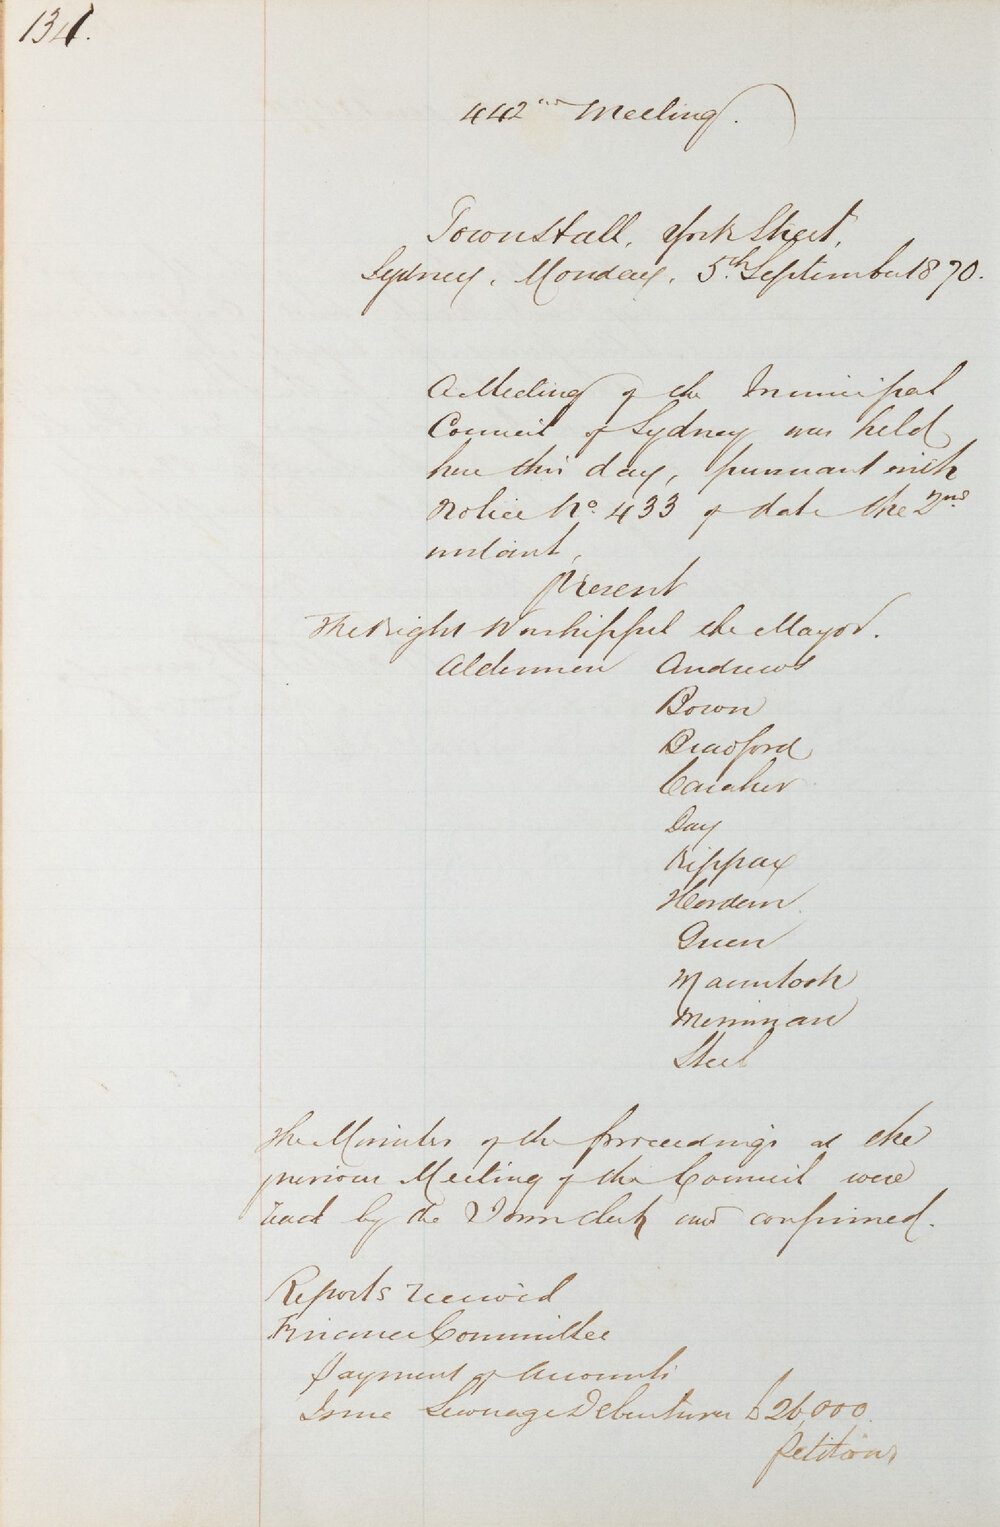 134.
442nd Meeting.
Town Hall, York Street,
Sydney, Monday, 5th September 1870.
A Meeting of the Municipal
Council of Sydney was held
here this day, pursuant with
Notice No. 433 of date the 2nd
instant,
present
The Right Worshipful the Mayor.
Aldermen Andrews
Bown
Bradford
Caraher
Day
Kippax
Hordern
Green
Macintosh
Merriman
Steel
The Minutes of the proceedings at the
previous Meeting of the Council were
read by the Town Clerk and confirmed.
Reports received
Finance Committee
Payment of Accounts
Issue Sewerage Debentures £26,000
Petitions